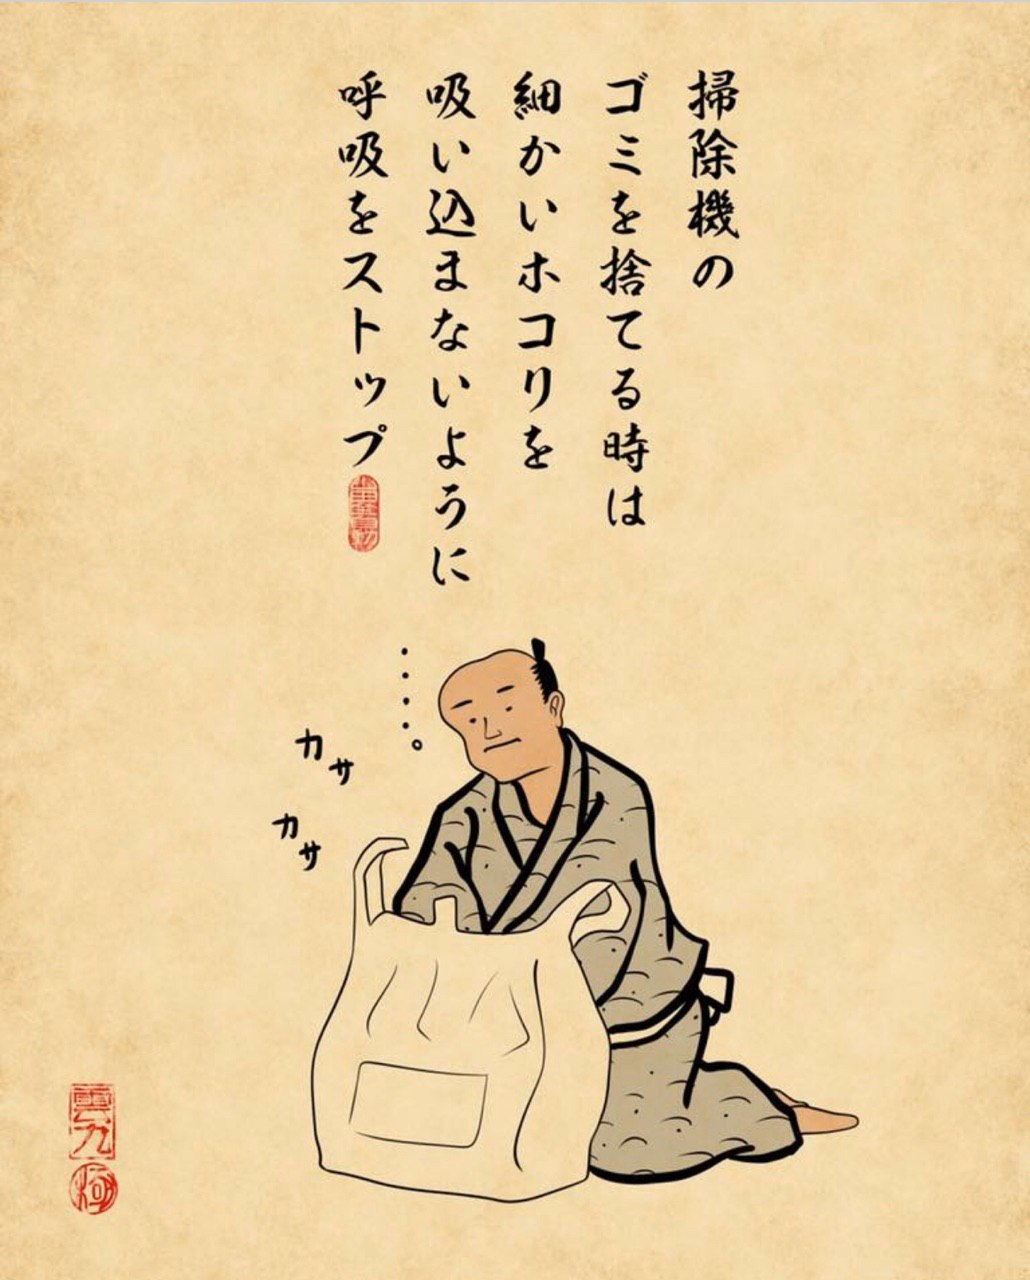 掃除機の
ゴミを捨てる時は
細かいホコリを
吸い込まないように
呼吸をストップ
・・・・。
カサ
カサ
雲九
極